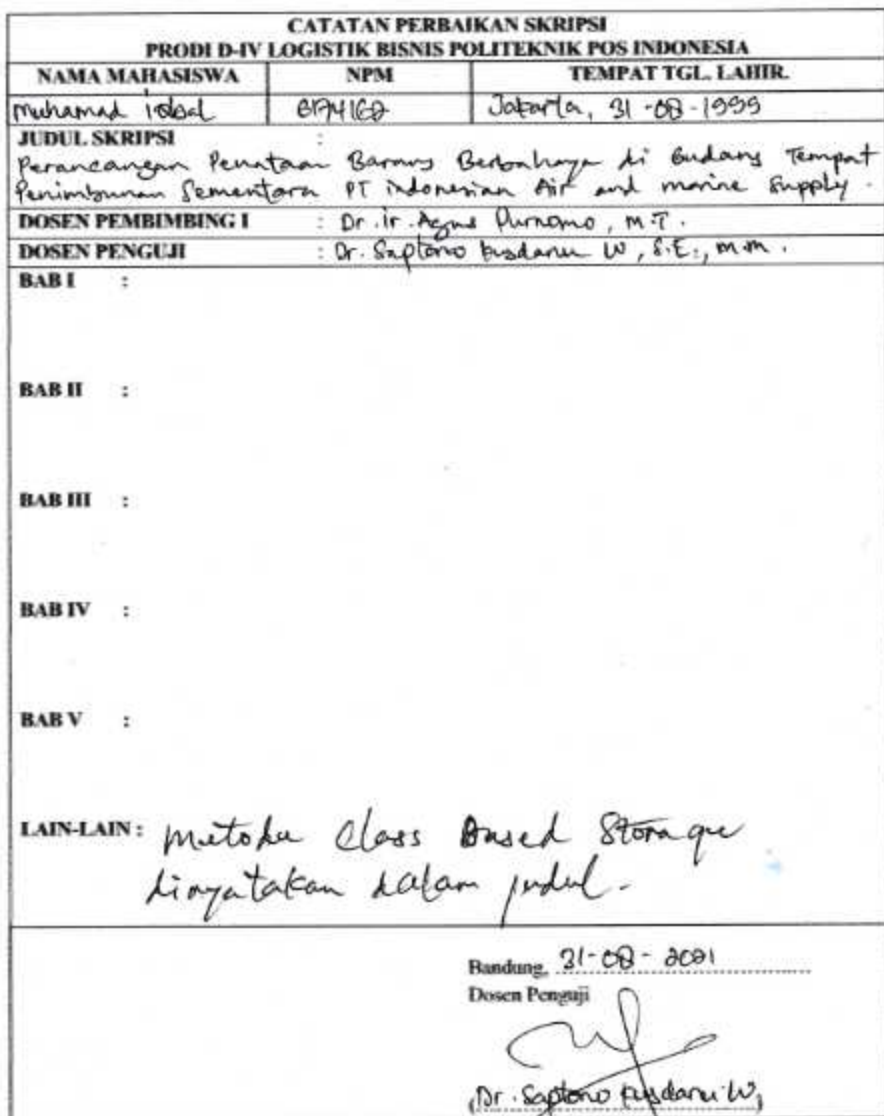 CATATAN PERBAIKAN SKRIPSI
PRODI D-IV LOGISTIK BISNIS POLITEKNIK POS INDONESIA
NAMA MAHASISWA NPM TEMPAT TGL. LAHIR.
Muhamad iqbal 6174162 Jakarta, 31-08-1999
JUDUL SKRIPSI :
Perancangan Penataan Barang Berbahaya di Gudang Tempat
Penimbunan Sementara PT indonesian Air and marine Supply.
DOSEN PEMBIMBING I : Dr. ir. Agus Purnomo, M.T.
DOSEN PENGUJI : Dr. Saptono W, S.E., m.m.
BAB I :
BAB II :
BAB III :
BAB IV :
BAB V :
LAIN-LAIN : metode Class Based Storage
dinyatakan dalam judul.
Bandung, 31-08-2021
Dosen Penguji
(Dr. Saptono W)